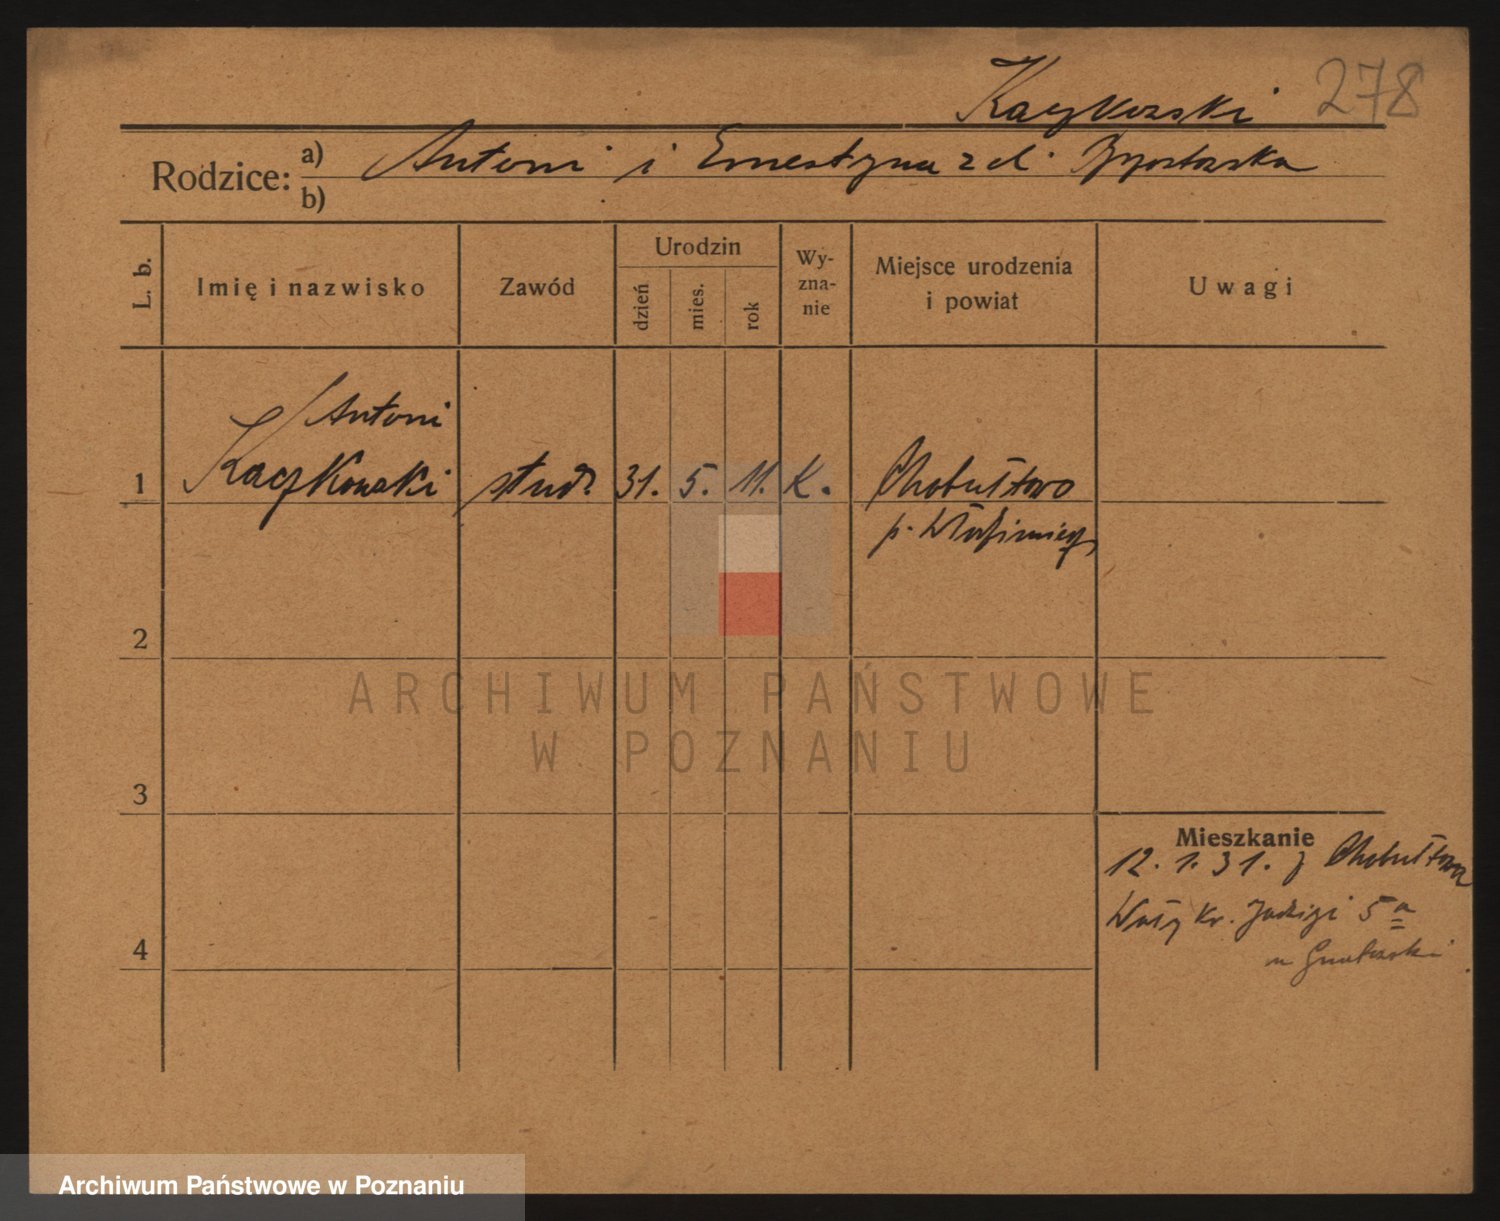 278
Rodzice:
a) Antoni i Ernestyna z d.
b)
L. b.
Imię i nazwisko
Zawód
Urodzin
dzień
mies.
rok
Wy-
zna-
nie
Miejsce urodzenia
i powiat
Uwagi
Antoni
1 stud. 31. 5. 11. K. Chobułtowo
p. Włodzimierz
2
3
4
Mieszkanie
12. 1. 31. z Chobułtowa
Wały Kr. Jadwigi 5a
ARCHIWUM PAŃSTWOWE
W POZNANIU
Archiwum Państwowe w Poznaniu